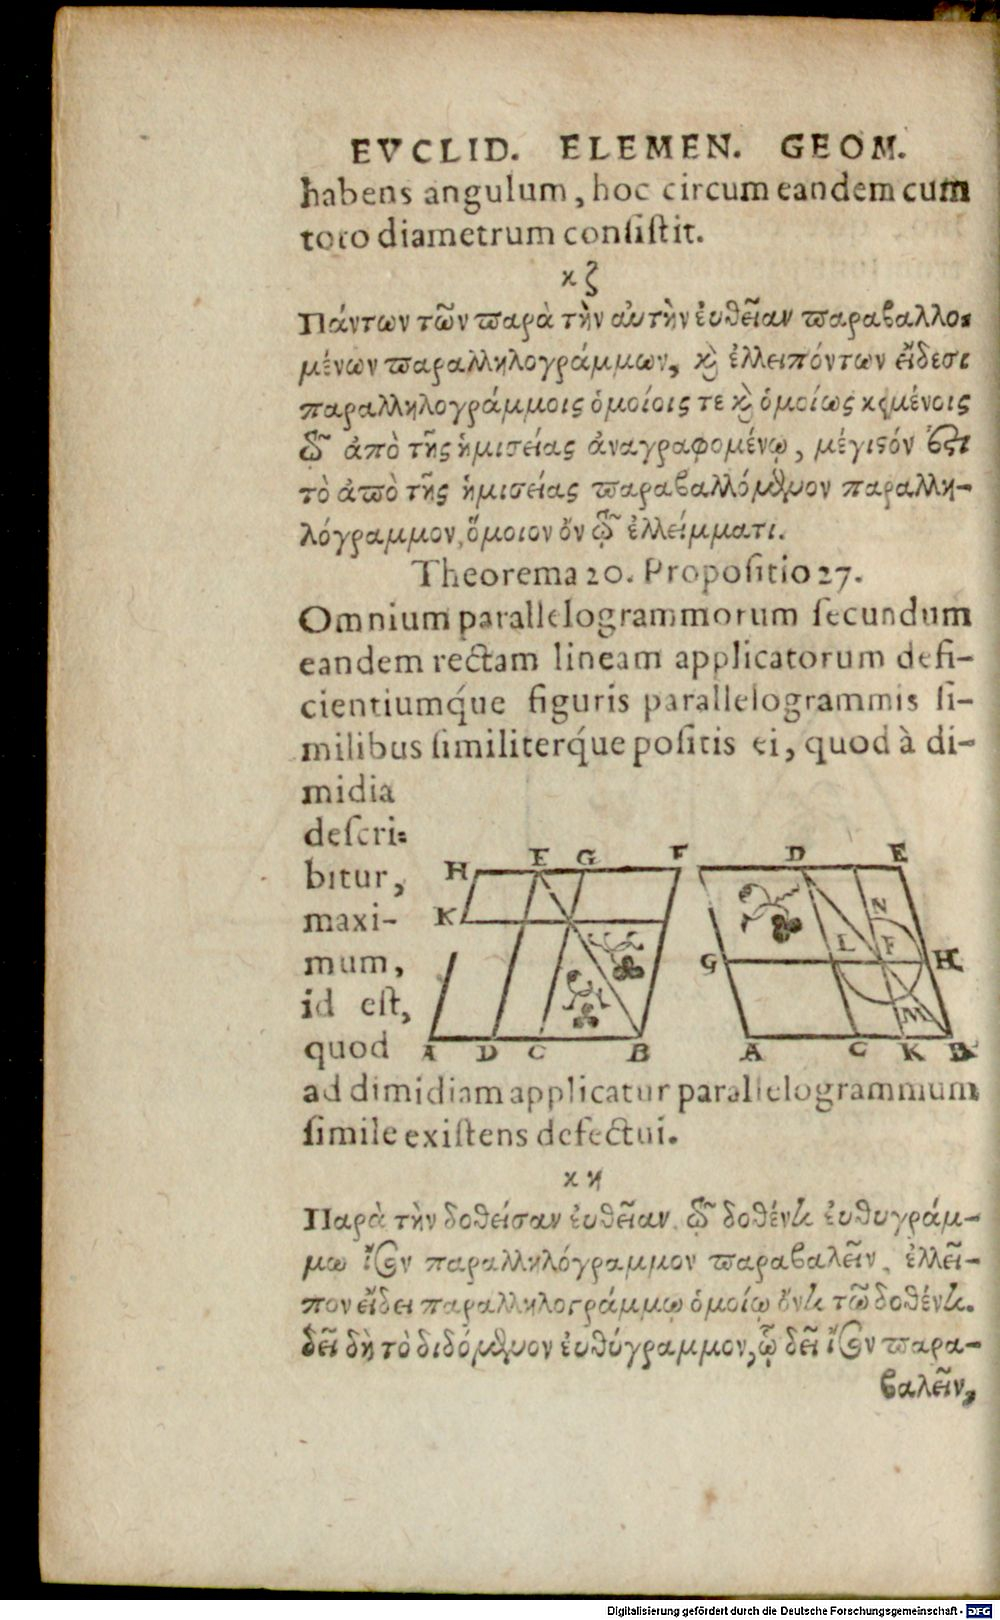 EVCLID. ELEMEN. GEOM.
habens angulum, hoc circum eandem cum
toto diametrum consiſtit.
κζ
Πάντων τῶν ϖαρὰ τὴν αὐτὴν ἐυθεῖαν ϖαραβαλλο-
μένων ϖαραλληλογράμμων, ϗ ἐλλειπόντων εἴδεσι
παραλληλογράμμοις ὁμοίοις τε ϗ ὁμοίως κειμένοις
τῷ ἀπὸ τῆς ἡμισείας ἀναγραφομένῳ, μέγιϛόν ἐϛι
τὸ ἀϖὸ τῆς ἡμισείας ϖαραβαλλόμενον παραλλη-
λόγραμμον, ὅμοιον ὂν τῷ ἐλλείμματι.
Theorema 20. Propoſitio 27.
Omnium parallelogrammorum ſecundum
eandem rectam lineam applicatorum defi-
cientiumq́ue figuris parallelogrammis ſi-
milibus ſimiliterq́ue poſitis ei, quod à di-
midia
deſcri-
bitur,
maxi-
mum,
id eſt,
quod
H E G F
K
A D C B
D E
N
L F
G H
M
A C K B
ad dimidiam applicatur parallelogrammum
ſimile exiſtens defectui.
κη
Παρὰ τὴν δοθείσαν ἐυθεῖαν τῷ δοθέντι ἐυθυγράμ-
μω ἴσον παραλληλόγραμμον ϖαραβαλεῖν, ἐλλεῖ-
πον εἴδει παραλληλογράμμῳ ὁμοίῳ ὄντι τῶ δοθέντι.
δεῖ δὴ τὸ διδόμενον ἐυθύγραμμον, ᾧ δεῖ ἴσον ϖαρα-
βαλεῖν,
Digitalisierung gefördert durch die Deutsche Forschungsgemeinschaft - DFG